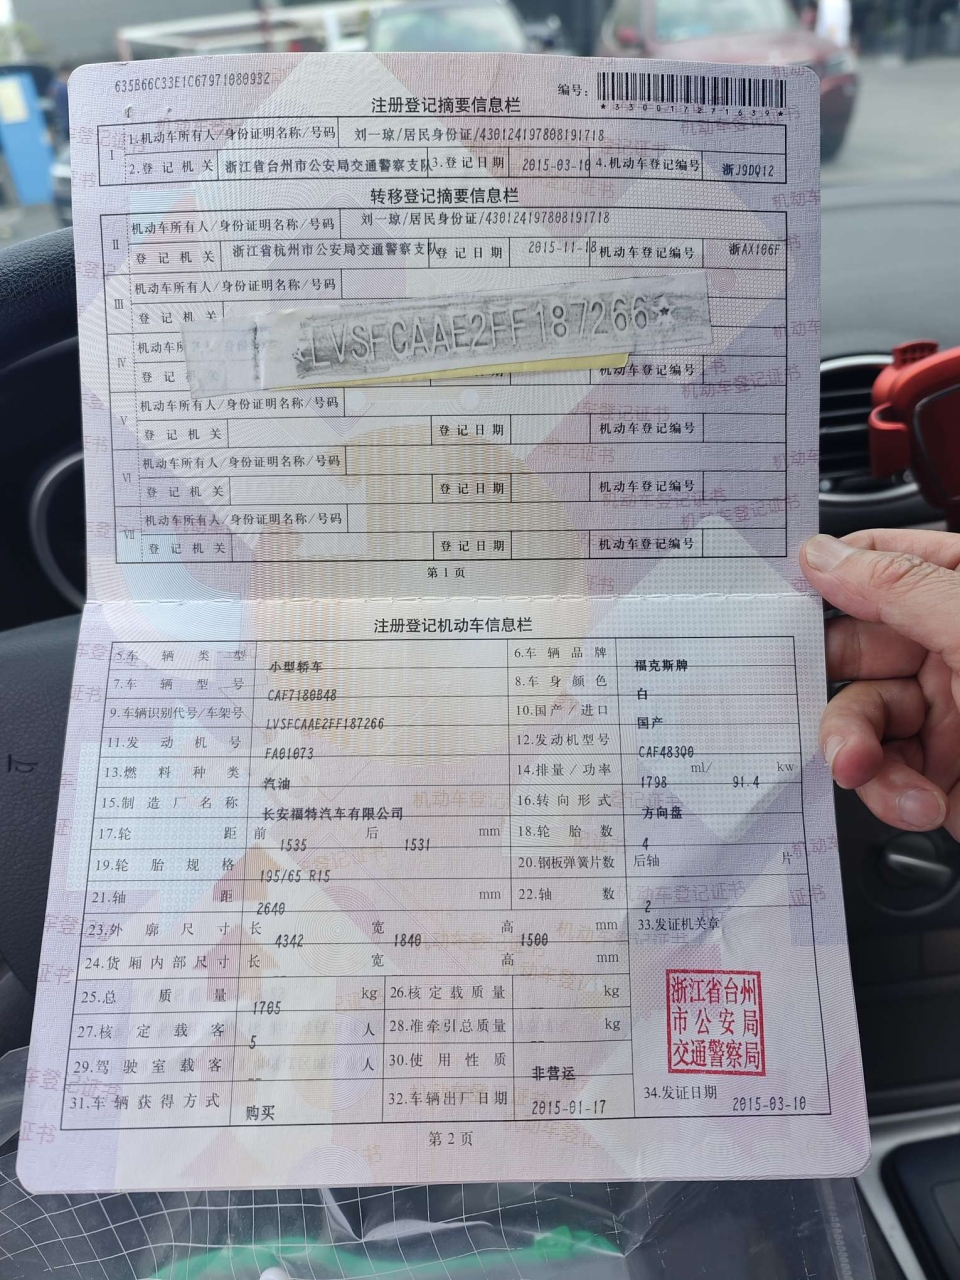 635B66C33E1C67971080932
编号:
*330017271639*
注册登记摘要信息栏
Ⅰ
1.机动车所有人/身份证明名称/号码 刘一琼/居民身份证/430124197808191718
2.登记机关 浙江省台州市公安局交通警察支队 3.登记日期 2015-03-10 4.机动车登记编号 浙J9DQ12
转移登记摘要信息栏
Ⅱ
机动车所有人/身份证明名称/号码 刘一琼/居民身份证/430124197808191718
登记机关 浙江省杭州市公安局交通警察支队 登记日期 2015-11-18 机动车登记编号 浙AX106F
Ⅲ
机动车所有人/身份证明名称/号码
登记机
*LVSFCAAE2FF187266*
Ⅳ
机动车所
登记
登记日期 机动车登记编号
Ⅴ
机动车所有人/身份证明名称/号码
登记机关 登记日期 机动车登记编号
Ⅵ
机动车所有人/身份证明名称/号码
登记机关 登记日期 机动车登记编号
Ⅶ
机动车所有人/身份证明名称/号码
登记机关 登记日期 机动车登记编号
第1页
注册登记机动车信息栏
5.车辆类型 小型轿车 6.车辆品牌 福克斯牌
7.车辆型号 CAF7180B48 8.车身颜色 白
9.车辆识别代号/车架号 LVSFCAAE2FF187266 10.国产/进口 国产
11.发动机号 FA01073 12.发动机型号 CAF483Q0
13.燃料种类 汽油 14.排量/功率 1798 ml/ 91.4 kw
15.制造厂名称 长安福特汽车有限公司 16.转向形式 方向盘
17.轮距 前 1535 后 1531 mm 18.轮胎数 4
19.轮胎规格 195/65 R15 20.钢板弹簧片数 后轴 片
21.轴距 2640 mm 22.轴数 2
23.外廓尺寸 长 4342 宽 1840 高 1500 mm 33.发证机关章
24.货厢内部尺寸 长 -- 宽 高 mm
25.总质量 1705 kg 26.核定载质量 -- kg
27.核定载客 5 人 28.准牵引总质量 -- kg
29.驾驶室载客 -- 人 30.使用性质 非营运
31.车辆获得方式 购买 32.车辆出厂日期 2015-01-17
浙江省台州
市公安局
交通警察局
34.发证日期 2015-03-10
第2页